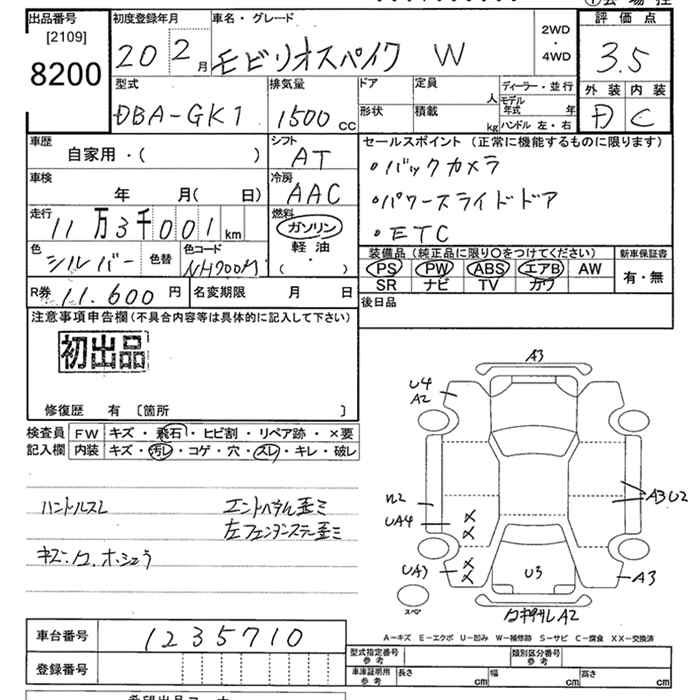 出品番号
[2109]
8200
初度登録年月
20 2月
車名・グレード
モビリオスパイク W
2WD
・
4WD
評価点
3.5
外装 内装
D C
型式
DBA-GK1
排気量
1500cc
ドア
形状
定員
人
積載
kg
ディーラー・並行
モデル年式 年
ハンドル 左・右
車歴
自家用・( )
シフト
AT
車検
年 月( 日)
冷房
AAC
走行
11万3千001km
燃料
ガソリン
軽油
( ・ )
色
シルバー
色替
色コード
NH700M
R券 11.600円
名変期限 月 日
セールスポイント(正常に機能するものに限ります)
・バックカメラ
・パワースライドドア
・ETC
装備品(純正品に限り○をつけてください)
PS PW ABS エアB AW
SR ナビ TV カワ
新車保証書
有・無
後日品
注意事項申告欄(不具合内容等は具体的に記入して下さい)
初出品
修復歴 有 〔箇所 〕
検査員記入欄
FW キズ・飛石・ヒビ割・リペア跡・×要
内装 キズ・汚レ・コゲ・穴・スレ・キレ・破レ
ハンドルスレ
エンドパネル歪ミ
左フェンダーステー歪ミ
A3
U4
A2
UA4
UA3
A3U2
A3
U3
スペア
A2
A-キズ E-エクボ U-凹み W-補修跡 S-サビ C-腐食 XX-交換済
車台番号
1235710
登録番号
型式指定番号
参考
類別区分番号
参考
車庫証明用
参考
長さ cm
幅 cm
高さ cm